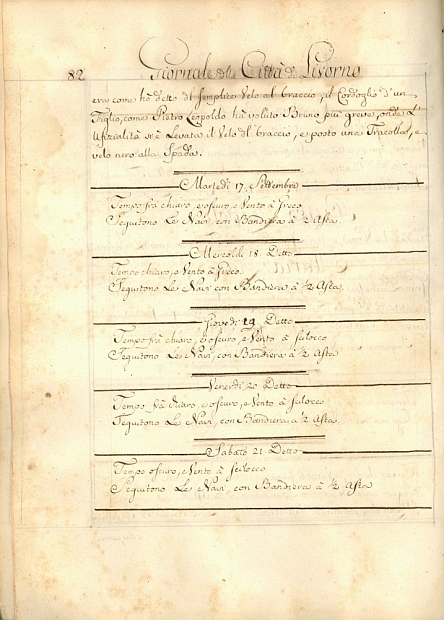 82 Giornale della Città di Livorno
era come hà detto di semplice Velo al braccio, il Cordoglio d'un
Figlio, come Pietro Leopoldo hà voluto Bruno più greve, onde L'
Ufizialità si è Levato il Velo al braccio, e posto una Tracolla, e
velo nero alla Spada.
Martedì 17. Settembre
Tempo frà chiaro, e oscuro, e Vento à Greco
Seguitono Le Navi, con Bandiera à ½ Asta.
Mercoldì 18 Detto
Tempo chiaro, e Vento à Greco.
Seguitono Le Navi con Bandiera à ½ Asta.
Giovedì 19 Detto
Tempo frà chiaro, e oscuro, e Vento à scilocco
Seguitono Le Navi, con Bandiera à ½ Asta
Venerdì 20 Detto
Tempo frà chiaro, e oscuro, e Vento à scilocco
Seguitono Le Navi, con Bandiera à ½ Asta.
Sabato 21 Detto
Tempo oscuro, e Vento à scilocco
Seguitono Le Navi, con Bandiera à ½ Asta